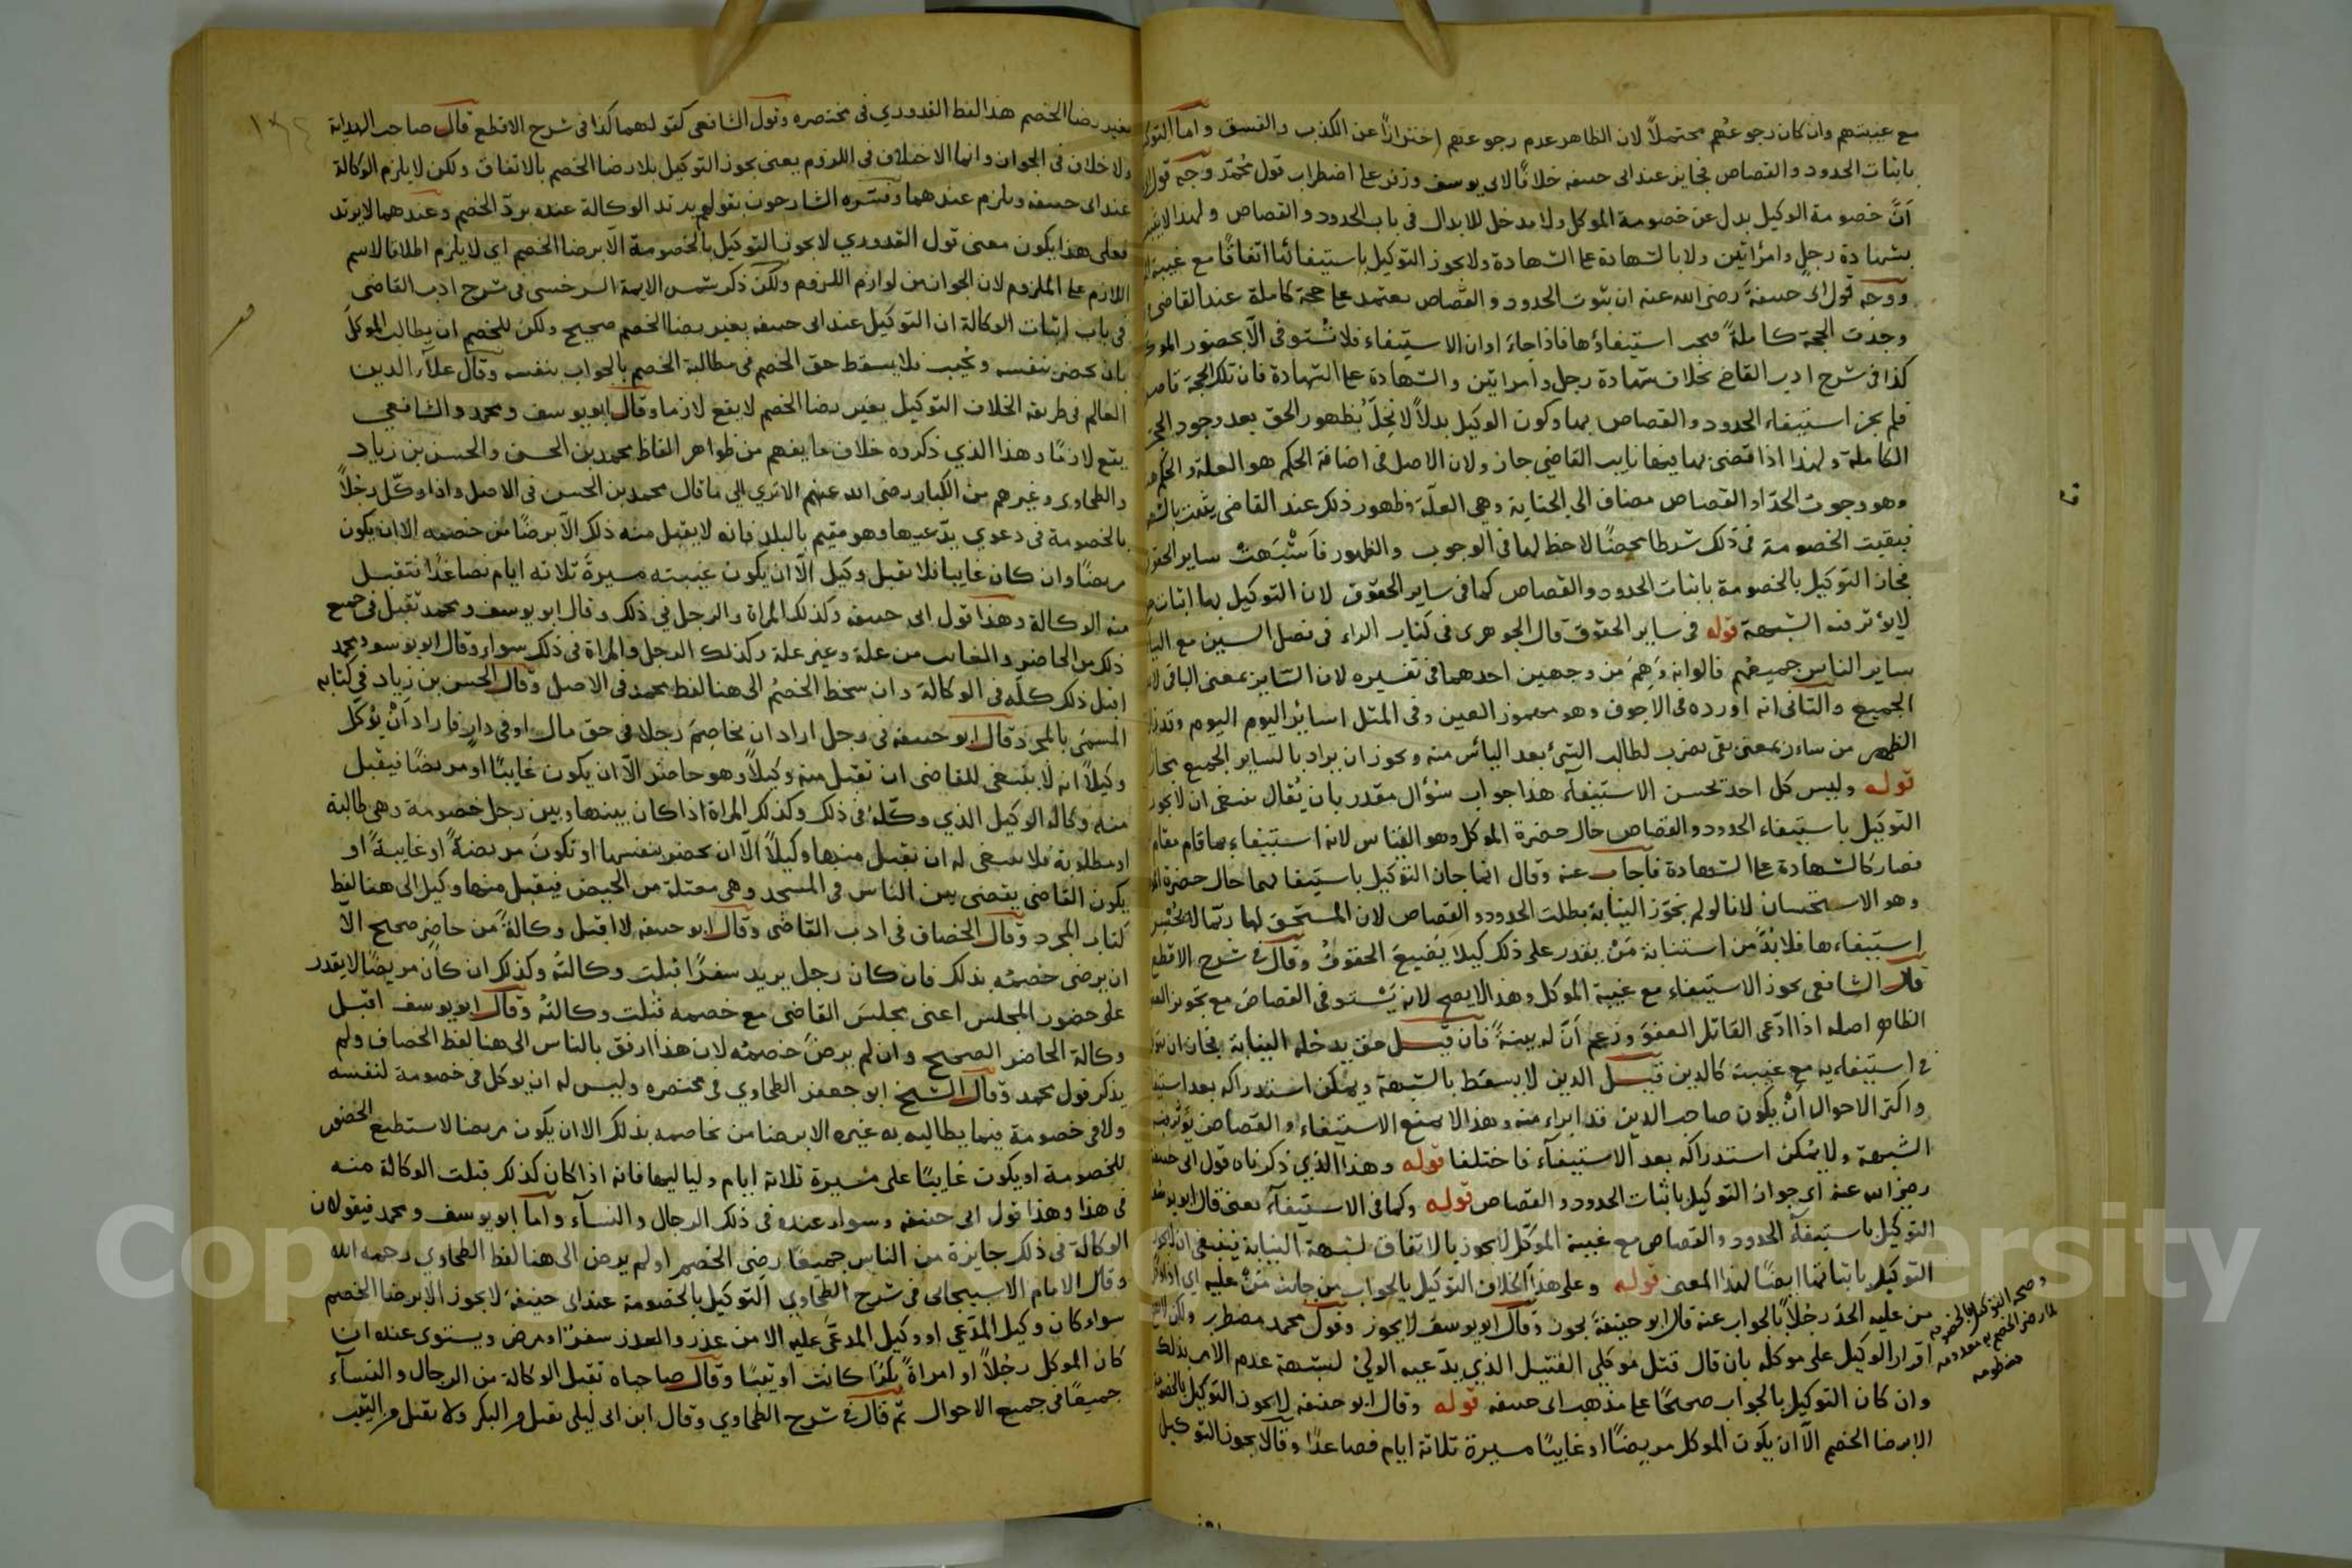 مع غيبتهم وان كان رجوعهم محتملاً لان الظاهر عدم رجوعهم احترازاً عن الكذب والفسق واما التوكيل
باثبات الحدود والقصاص فجايز عند ابى حنيفه خلافاً لابى يوسف وزفر على اضطراب قول محمّد وجه قول
اَنَّ خصومة الوكيل بدل عن خصومة الموكل ولا مدخل للابدال فى باب الحدود والقصاص ولهذا لا
بشهادة رجل وامرأتين ولا بالشهادة على الشهادة ولا يجوز التوكيل باستيفائها اتفاقاً مع غيبة
ووجه قول ابى حنيفةَ رضى الله عنه ان ثبوت الحدود والقصاص يعتمد على حجة كاملة عند القاضى
وجدت الحجة كاملةً فيجب استيفاؤها فاذا جاءَ اوان الاستيفاء فلا تُستوفى الّا بحضور الموكل
كذا فى شرح ادب القاضى بخلاف شهادة رجل وامراتين والشهادة على الشهادة فان تلك الحجة قاصرة
فلم يجز استيفاء الحدود والقصاص بها وكون الوكيل بدلاً لا يُخِلّ بظهور الحق بعد وجود الحجة
الكاملة ولهذا اذا قضى بها نايب القاضي جاز ولان الاصل فى اضافة الحكم هو العلة والحكم
وهو وجوب الحدّ او القصاص مضاف الى الجناية وهي العلّة وظهور ذلك عند القاضى يثبت
فبقيت الخصومة فى ذلك شرطا محضًا لا حظ لها فى الوجوب والظهور فاَشْبَهتْ ساير الحقوق
فجاز التوكيل بالخصومة باثبات الحدود والقصاص كما فى ساير الحقوق لان التوكيل بها اثبات
لا يؤثر فيه الشبهة قوله فى ساير الحقوق قال الجوهرى فى كتاب الراء فى فصل السين مع الياء
ساير الناس جميعهم قالوا انه وَهِمَ من وجهين احدهما فى تفسيره لان السّاير بمعنى الباقى لا
الجميع والثانى انه اورده فى الاجوف وهو مهموز العين وفى المثل اسائر اليوم اليوم وقد زال
الظهر من ساءر بمعنى بقى يضرب لطالب الشئ بعد اليأس منه ويجوز ان يراد بالساير الجميع مجاز
قوله وليس كل احد يحسن الاستيفآء هذا جواب سُؤال مقدر بان يُقال ينبغى ان لا يجوز
التوكيل باستيفاء الحدود والقصاص حال حضرة الموكل وهو القياس لانه استيفاء بما قام مقام
فصار كالشهادة على الشهادة فاجاب عنه وقال انما جاز التوكيل باستيفائها حال حضرة
وهو الاستحسان لانا لو لم نجوّز النيابة بطلت الحدود والقصاص لان المستحق لها ربّما لا يُحسن
استيفاءها فلا بُدَّ من استنابة مَنْ يقدر على ذلك كيلا يَضيعَ الحقوقُ وقال فى شرح الاقطع
قال الشافعى يجوز الاستيفاء مع غيبة الموكل وهذا لا يصح لانه يَسْتوفى القصاص مع تجويز العفو
الظاهر اصله اذا ادّعى القاتل العفوَ وزعم اَنّ له بينةً فان قيل حق يدخله النيابة فجاز ان
فى استيفاءيه مع غيبته كالدين قيل الدين لا يسقط بالشبهة ويُمكن استدراكه بعد استيفاء
واكثر الاحوال اَنْ يكون صاحب الدين قد ابراء منه وهذا لا يمنع الاستيفاء والقصاص يؤثر فيه
الشبهة ولا يُمكن استدراكه بعد الاستيفآء فاختلفا قوله وهذا الذي ذكرناه قول ابى حنيفة
رضى الله عنه اى جواز التوكيل باثبات الحدود والقصاص قوله وكما فى الاستيفآء يعنى قال ابو يوسف
التوكيل باستيفآء الحدود والقصاص مع غيبة الموكّل لا يجوز بالاتفاق لشبهة النيابة ينبغى ان لا يجوز
التوكيل باثباتها ايضًا لهذا المعنى قوله وعلى هذا الخلاف التوكيل بالجواب من جانب مَنْ عليه اى اذا
من عليه الحدّ رجُلاً بالجواب عنه قال ابو حنيفةَ يجوز وقال ابو يوسف لا يجوز وقول محمد مضطرب ولكن
اقرار الوكيل على موكله بان قال قتل مُوَكلي القتيل الذي يدّعيه الولىُّ لشبهة عدم الامر بذلك
وان كان التوكيل بالجواب صحيحًا على مذهب ابى حنيفه قوله وقال ابو حنيفه لا يجوز التوكيل بالخصومة
الا برضا الخصم الّا ان يكون الموكل مريضًا او غايبًا مسيرة ثلاثة ايام فصاعدًا وقالا يجوز التوكيل
وصحه التوكيل بالخصومه
بغير رضا الخصم هذا لفظ القدوري فى مختصره وقول الشافعى كقولهما كذا فى شرح الاقطع قال صاحب الهداية
ولا خلاف فى الجواز وانما الاختلاف فى اللزوم يعنى يجوز التوكيل بلا رضا الخصم بالاتفاق ولكن لا يلزم الوكالة
عند ابى حنيفه ويلزم عندهما وفسّره الشارحون بقولهم يرتد الوكالة عنده بردّ الخصم وعندهما لا يرتد
فعلى هذا يكون معنى قول القدوري لا يجوز التوكيل بالخصومة الّا برضا الخصم اي لا يلزم اطلاقا لاسم
اللازم على الملزوم لان الجواز من لوازم اللزوم ولكن ذكر شمس الايمة السرخسى فى شرح ادب القاضى
فى باب اثبات الوكالة ان التوكيل عند ابى حنيفه بغير رضا الخصم صحيح ولكن للخصم ان يطالب الموكلَ
بان يحضر بنفسه ويُجيب فلا يسقط حق الخصم فى مطالبة الخصم بالجواب بنفسه وقال علآء الدين
العالم فى طريقه الخلاف التوكيل بغير رضا الخصم لا يقع لازما وقال ابو يوسف ومحمد والشافعي
يقع لازمًا وهذا الذي ذكروه خلاف ما يفهم من ظواهر الفاظ محمد بن الحسن والحسن بن زياد
والطحاوى وغيرهم من الكبار رضى الله عنهم الا ترى الي ما قال محمد بن الحسن فى الاصل واذا وكّل رجُلاً
بالخصومة فى دعوي يدّعيها وهو مقيم بالبلد فانه لا يقبل منه ذلك الّا برضًا من خصمه الا ان يكون
مريضًا وان كان غايبا فلا تقبل وكيل الّا ان يكون غيبته مسيرةَ ثلاثه ايام فصاعدًا فتقبل
منه الوكالة وهذا قول ابى حنيفه وكذلك المراة والرجل في ذلك وقال ابو يوسف ومحمد تقبل فى جميع
ذلك من الحاضر والغايب من علة وغير علة وكذلك الرجل والمراة فى ذلك سواء وقال ابو يوسف ومحمد
اقبل ذلك كلَّه فى الوكالة وان سخط الخصمُ الى هنا لفظ محمد فى الاصل وقال الحسن بن زياد فى كتابه
المسمّى بالمجرد قال ابو حنيفه فى رجل اراد ان يخاصِمَ رجلا فى حق مال او فى دار فاراد اَنْ يُوَكّل
وكيلاً انه لا ينبغى للقاضى ان تقبل منه وكيلاً وهو حاضر الّا ان يكون غايبًا او مريضًا فيقبل
منه وكالة الوكيل الذي وكّله فى ذلك وكذلك المراة اذا كان بينها وبين رجل خصومة وهى طالبة
او مطلوبة فلا ينبغى له ان يقبل منها وكيلاً الّا ان يحضر بنفسها او تكونَ مريضةً او غايبةً او
يكون القاضى يقضى بين الناس فى المسجد وهى معتلة من الحيض فيقبل منها وكيل الى هنا لفظ
كتاب المجرد وقال الخصاف فى ادب القاضى وقال ابو حنيفه لا اقبل وكالةً من حاضر صحيح الّا
ان يرضى خصمُه بذلك فان كان رجل يريد سفرًا قبلت وكالته وكذلك ان كان مريضًا لا يقدر
على حضور المجلس اعنى مجلسَ القاضى مع خصمه قبلت وكالتهُ وقال ابو يوسف اقبل
وكالة الحاضر الصحيح وان لم يرضَ خصمُه لان هذا ارفق بالناس الى هنا لفظ الخصاف ولم
يذكر قول محمد وقال الشيخ ابو جعفر الطحاوي فى مختصره وليس له ان يوكل فى خصومة لنفسه
ولا فى خصومة فيما يطالبه به غيره الا برضا من يخاصمه بذلك الا ان يكون مريضا لا يستطيع الحضور
للخصومة او يكون غايبًا على مَسيرة ثلاثة ايام ولياليها فانه اذا كان كذلك قبلت الوكالة منه
فى هذا وهذا قول ابى حنيفه وسواء عنده فى ذلك الرجال والنسآء واما ابو يوسف ومحمد فيقولان
الوكالة فى ذلك جايزة من الناس جميعًا رضى الخصم او لم يرض الى هنا لفظ الطحاوي رحمه الله
وقال الامام الاسبيجابى فى شرح الطحاوي التوكيل بالخصومة عند ابى حنيفةَ لا يجوز الا برضا الخصم
سواء كان وكيل المدّعي او وكيل المدعَى عليه الا من عذر والعذر سفر او مرض ويستوى عنده ان
كان الموكل رجُلاً او امراةً بكرًا كانت او ثيبًا وقال صاحباه تقبل الوكالة من الرجال والنسآء
جميعًا فى جميع الاحوال ثم قال فى شرح الطحاوي وقال ابن ابى ليلى تقبل من البكر ولا تقبل من الثيب
Copyright © King Saud University